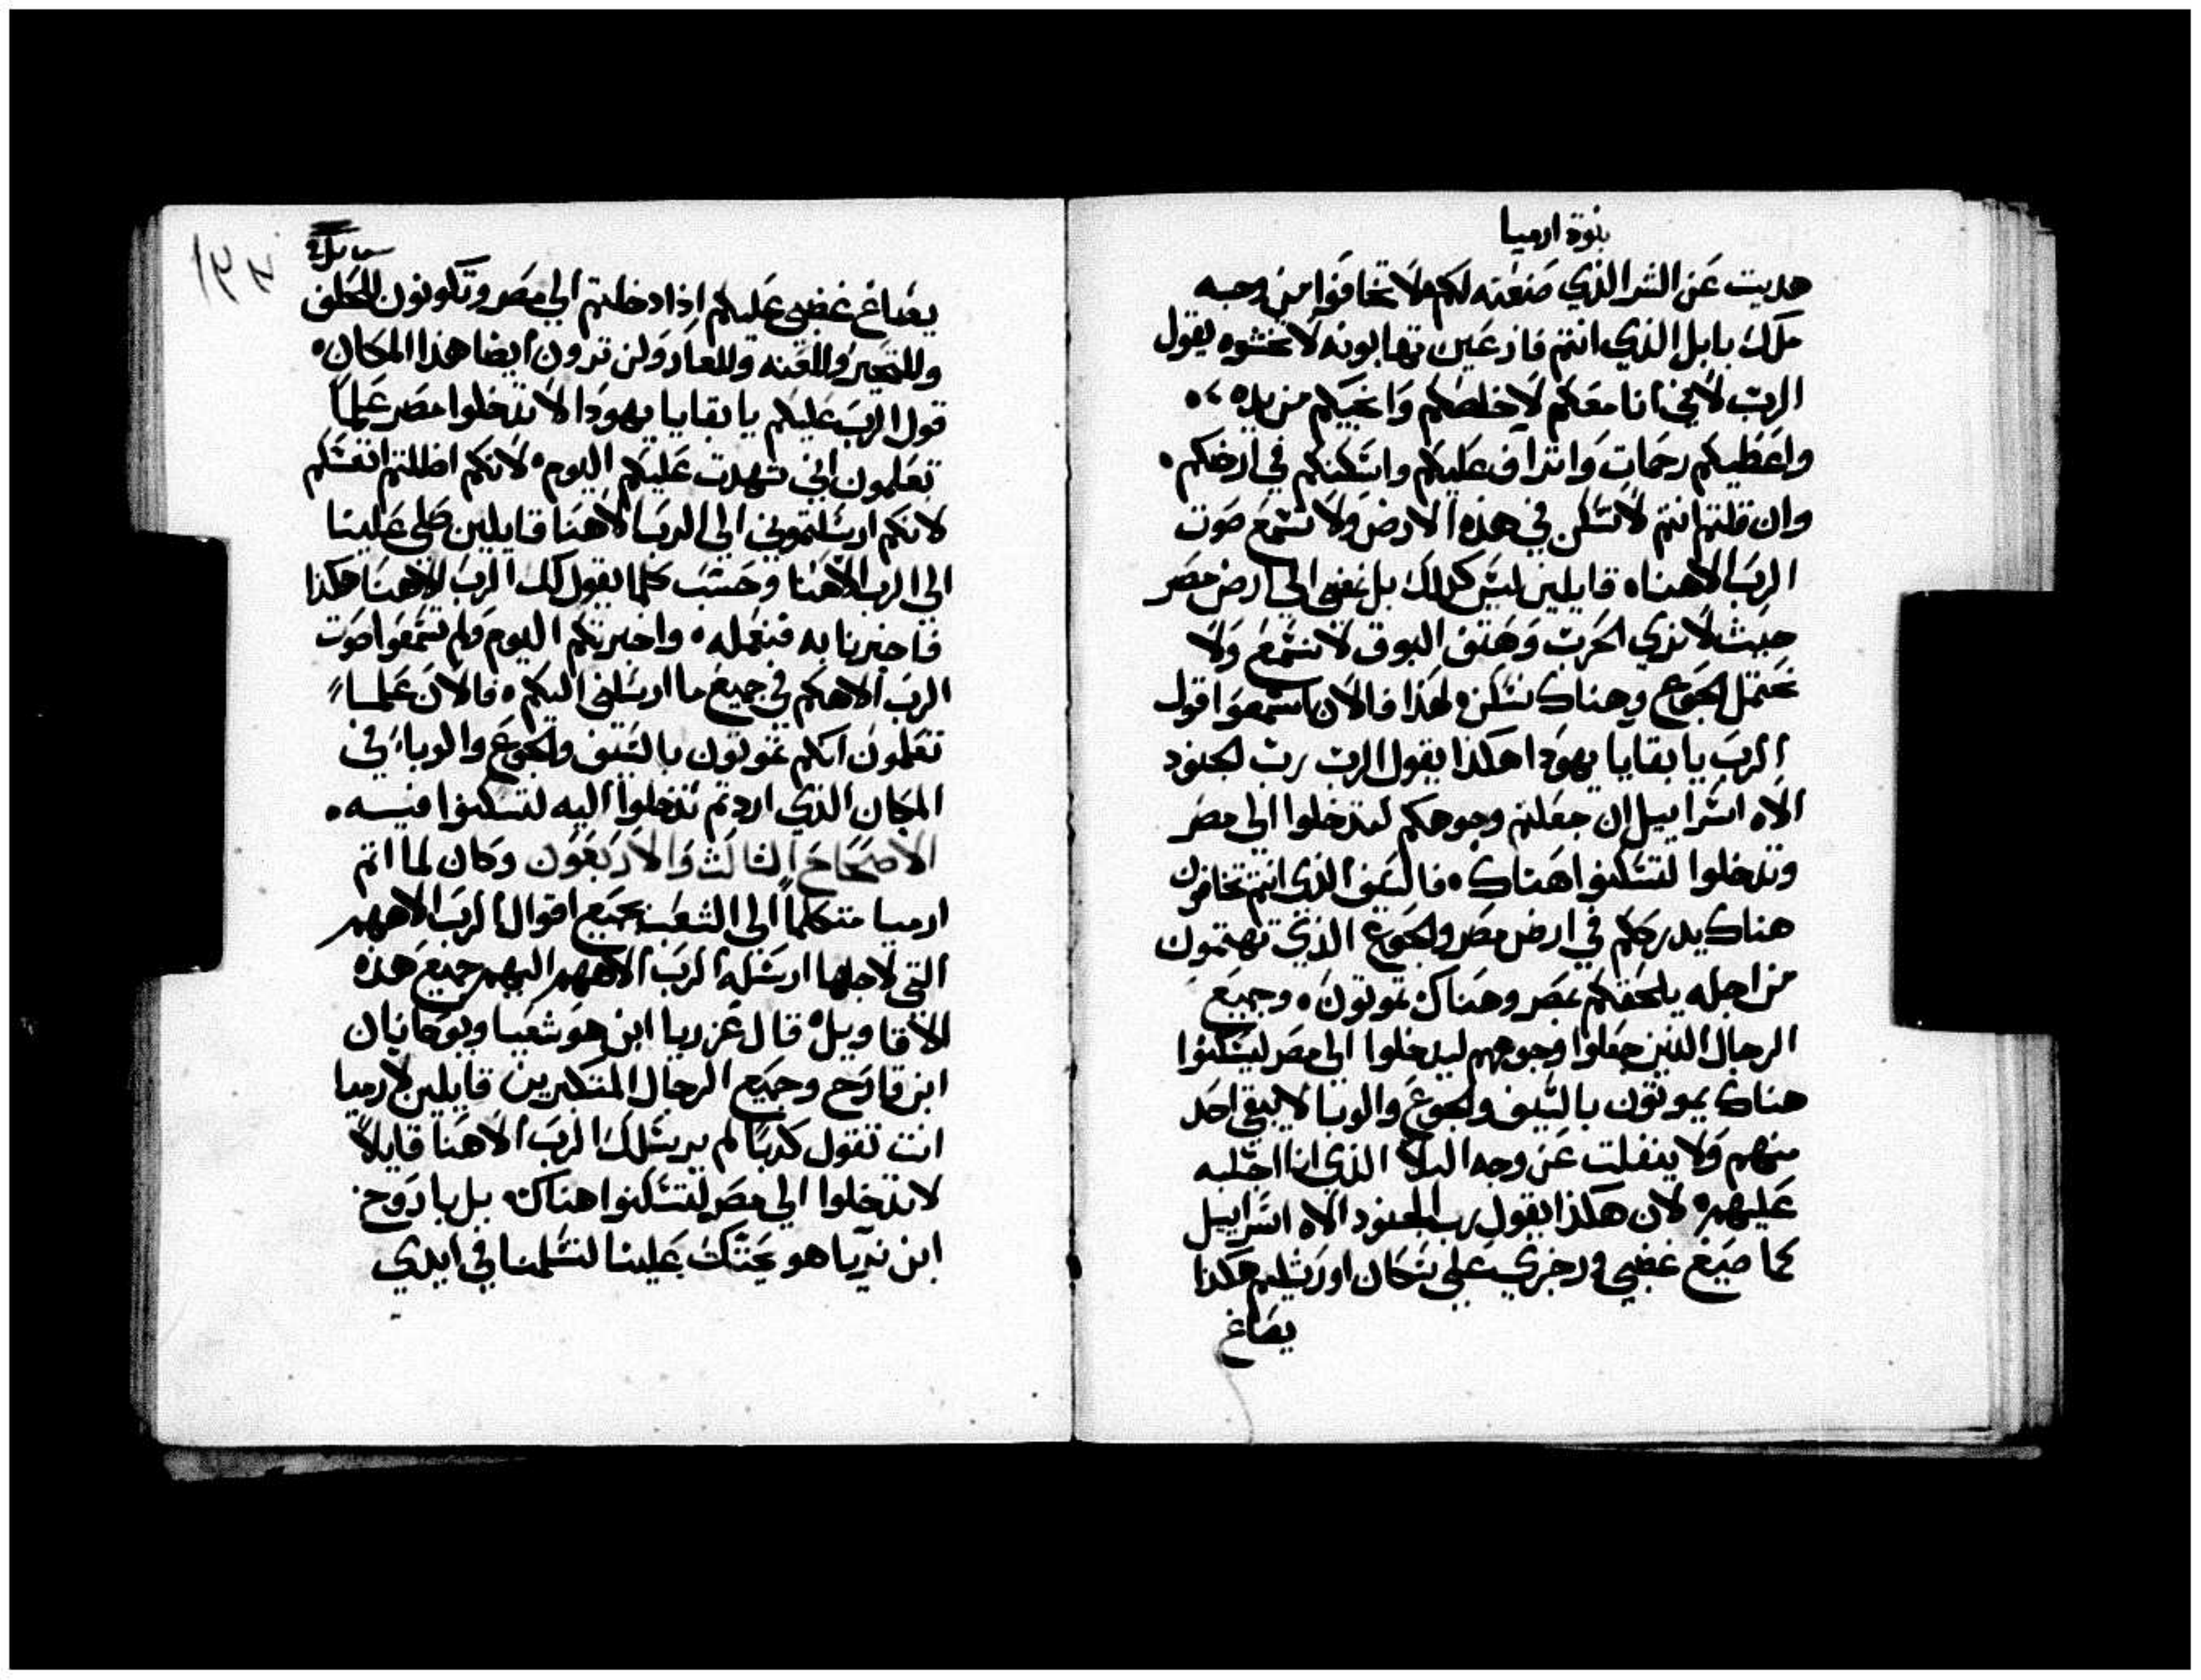 نبوة ارميا
هديت عن الشر الذي صنعته لكم ولا تخافوا من وجه
ملك بابل الذي انتم فازعين تهابونه لا تخشوه يقول
الرب لاني انا معكم لاخلصكم وانجيكم من يده
واعطيكم رحمات واتراف عليكم واسكنكم في ارضكم
وان قلتم انتم لا نسكن في هذه الارض ولا نسمع صوت
الرب الاهنا قايلين ليس كذلك بل نمضي الي ارض مصر
حيث لا نري الحرب وهتف البوق لا نسمع ولا
نحتمل الجوع وهناك نسكن لهذا فالان اسمعوا قول
الرب يا بقايا يهودا هكذا يقول الرب رب الجنود
الاه اسراييل ان جعلتم وجوهكم لتدخلوا الي مصر
وتدخلوا لتسكنوا هناك فالسيف الذي انتم تخافون
هناك يدرككم في ارض مصر والجوع الذي تهتمون
من اجله يلحقكم بمصر وهناك تموتون وجميع
الرجال الذين جعلوا وجوههم ليدخلوا الي مصر ليسكنوا
هناك يموتون بالسيف والجوع والوبا لا يبقي احد
منهم ولا ينفلت عن وجه البلا الذي انا اجلبه
عليهم لان هكذا يقول رب الجنود الاه اسراييل
كما صيغ غضبي ورجزي علي سكان اورشليم هكذا
يصاغ
يصاغ غضبي عليكم اذا دخلتم الي مصر وتكونون للحلف
وللتحير وللعنه وللعار ولن ترون ايضا هذا المكان
قول الرب عليكم يا بقايا يهودا لا تدخلوا مصر علماً
تعلمون اني شهدت عليكم اليوم لانكم اضللتم انفسكم
لانكم ارسلتموني الي الرب الاهنا قايلين صلي علينا
الي الرب الاهنا وحسب كلما يقول لك الرب الاهنا هكذا
فاخبرنا به فنعمله واخبرتكم اليوم ولم تسمعوا صوت
الرب الاهكم في جميع ما ارسلني اليكم فالان علماً
تعلمون انكم تموتون بالسيف والجوع والوباء في
المكان الذي اردتم تدخلوا اليه لتسكنوا فيه
الاصحاح الثالث والاربعون وكان لما اتم
ارميا متكلماً الي الشعب بجميع اقوال الرب الاههم
التي لاجلها ارسله الرب الاههم اليهم جميع هذه
الاقاويل قال عزريا ابن هوشعيا ويوحانان
ابن قارح وجميع الرجال المتكبرين قايلين لارميا
انت تقول كدباً لم يرسلك الرب الاهنا قايلاً
لا تدخلوا الي مصر لتسكنوا هناك بل باروخ
ابن نيريا هو يحثك علينا لتسلمنا في ايدي